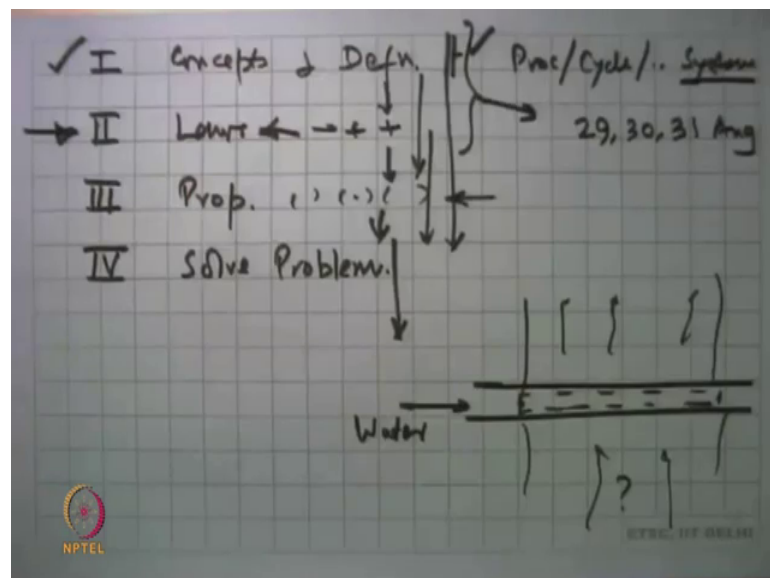 ✓ I Concepts & Defn. Proc/Cycle/.. System
II Laws ← → + + 29, 30, 31 Aug
III Prop. ( ) (.) ( )
IV Solve Problem.
Water
?
NPTEL
ETSC, IIT DELHI